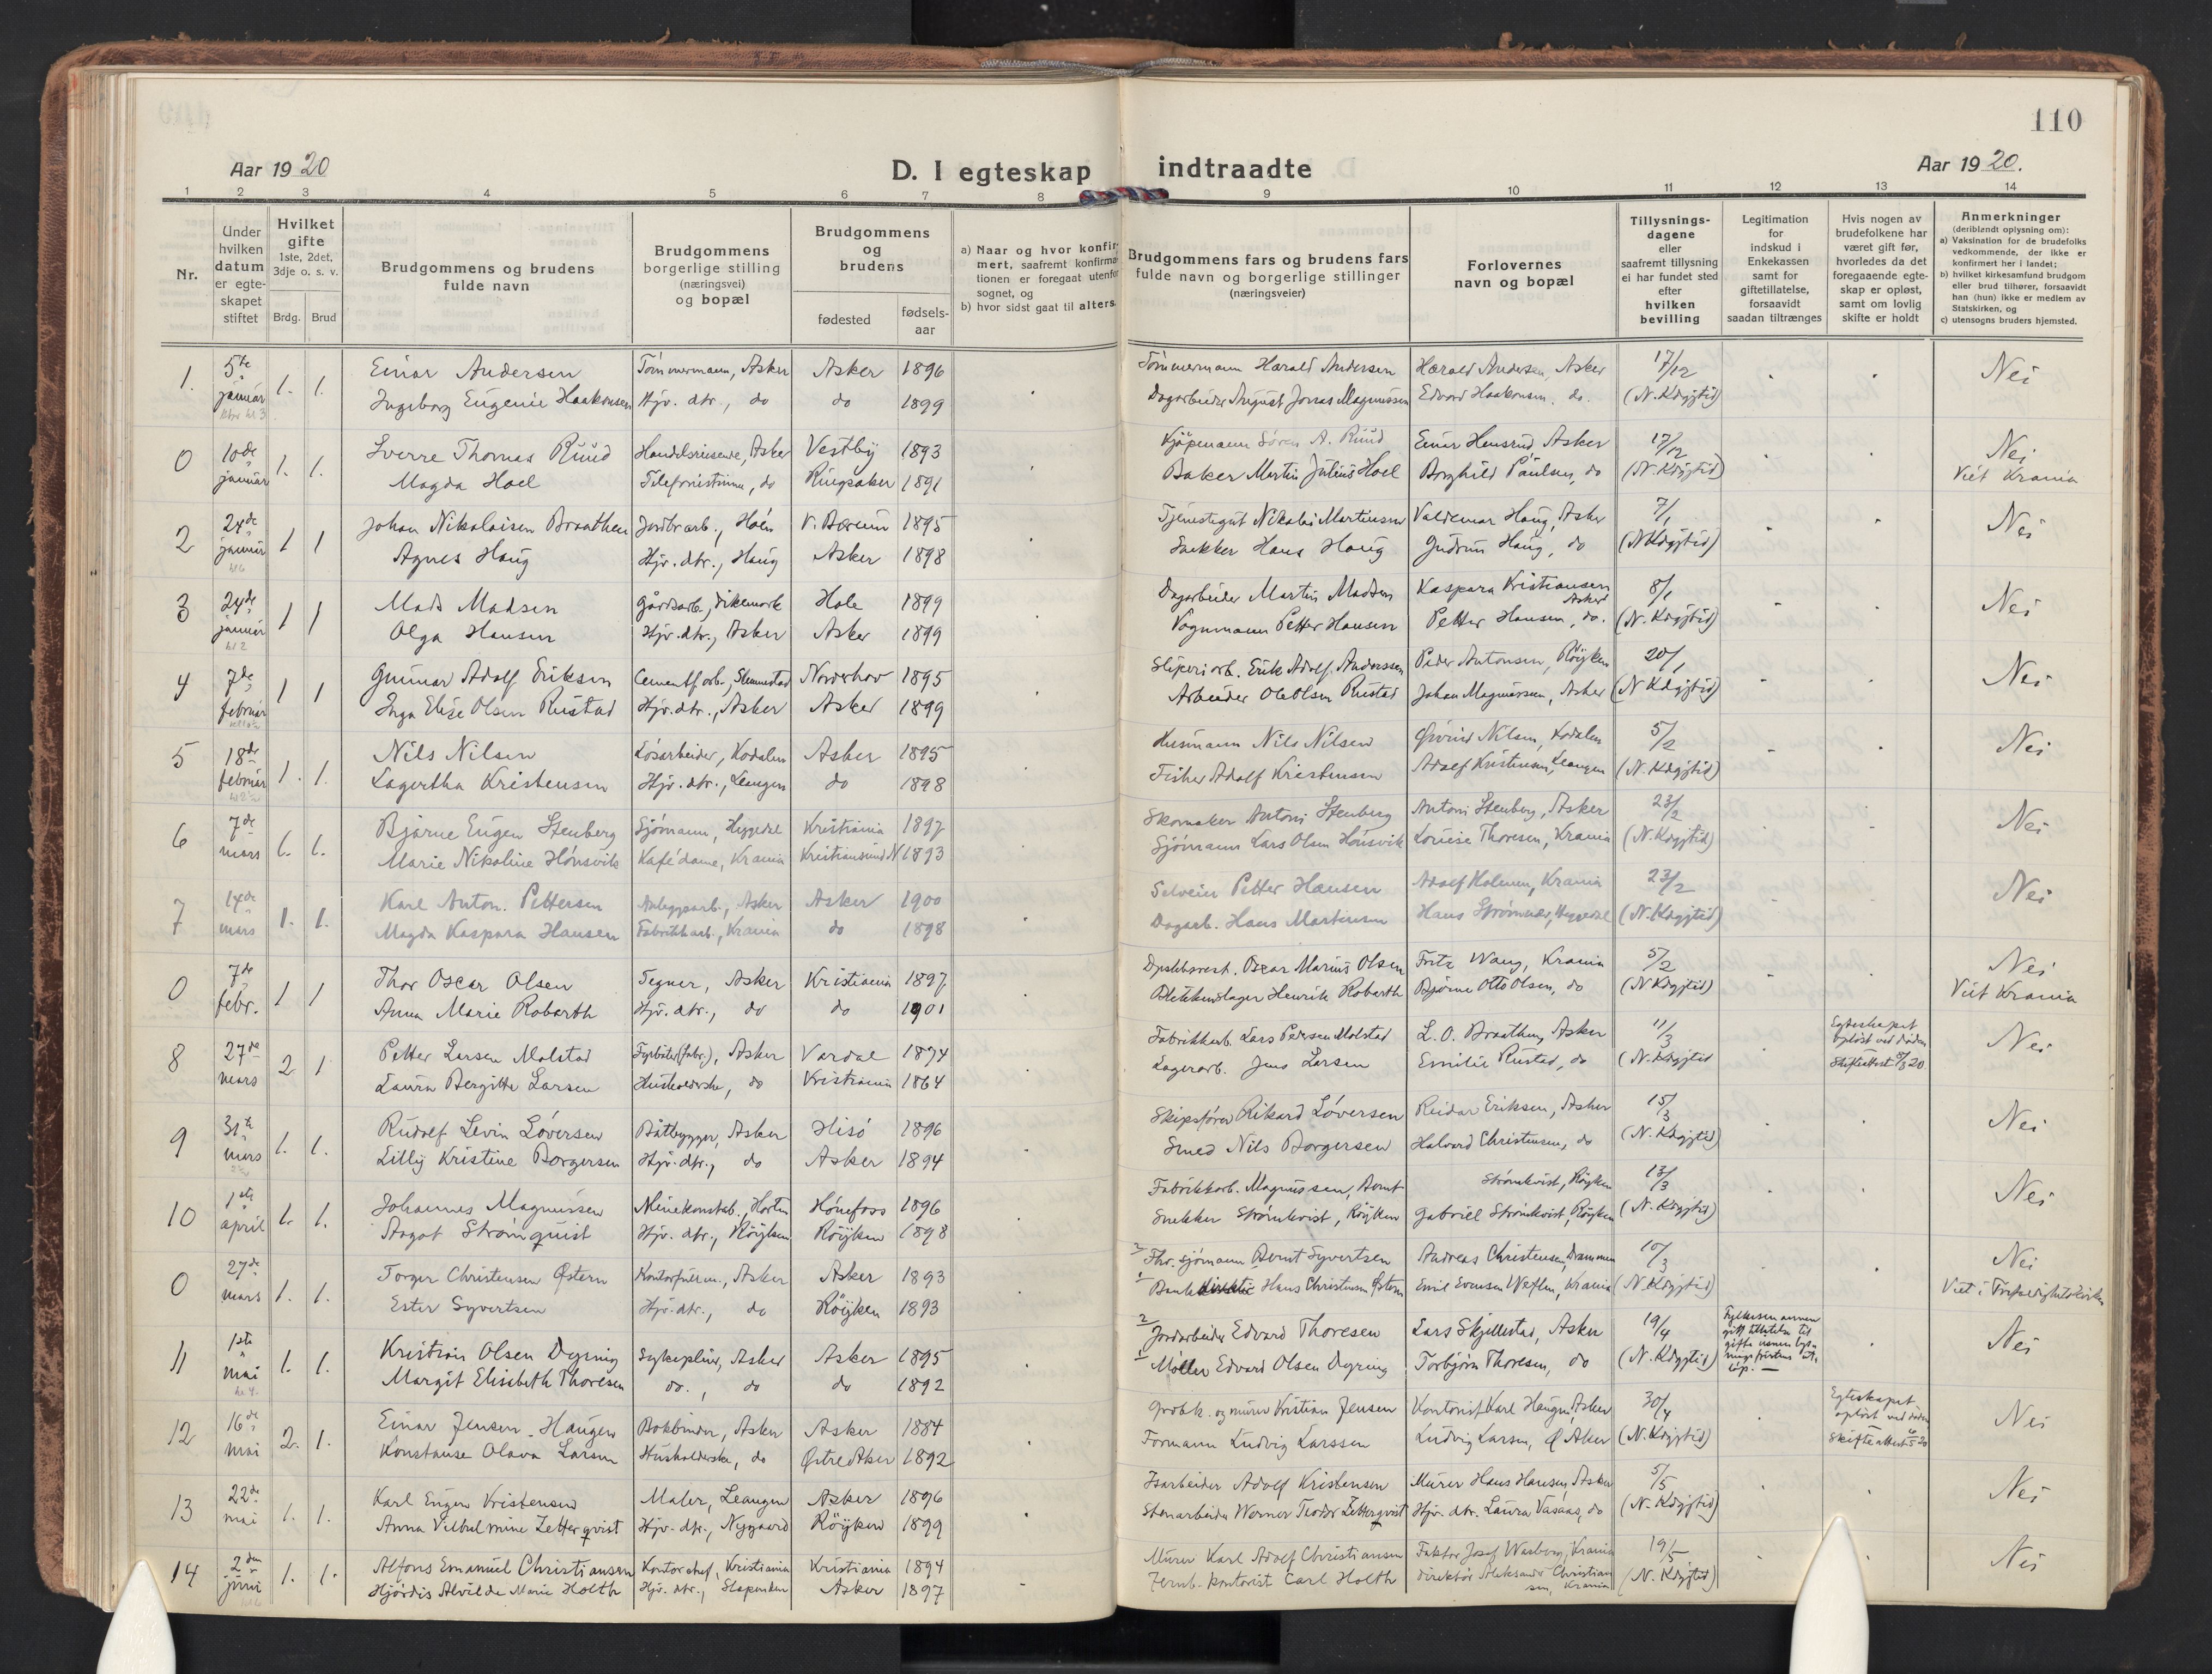 110
Aar 1920
D. I egteskap indtraadte
Aar 1920.
1 2 3 4 5 6 7 8 9 10 11 12 13 14
Nr.
Under hvilken datum er egteskapet stiftet
Hvilket gifte 1ste, 2det, 3dje o. s. v.
Brdg. Brud
Brudgommens og brudens fulde navn
Brudgommens borgerlige stilling (næringsvei) og bopæl
Brudgommens og brudens
fødested
fødsels-aar
a) Naar og hvor konfirmert, saafremt konfirmationen er foregaat utenfor sognet, og
b) hvor sidst gaat til alters.
Brudgommens fars og brudens fars fulde navn og borgerlige stillinger (næringsveier)
Forlovernes navn og bopæl
Tillysningsdagene eller saafremt tillysning ei har fundet sted efter hvilken bevilling
Legitimation for indskud i Enkekassen samt for giftetillatelse, forsaavidt saadan tiltrænges
Hvis nogen av brudefolkene har været gift før, hvorledes da det foregaaende egteskap er opløst, samt om lovlig skifte er holdt
Anmerkninger
(deriblandt oplysning om):
a) Vaksination for de brudefolks vedkommende, der ikke er konfirmert her i landet;
b) hvilket kirkesamfund brudgom eller brud tilhører, forsaavidt han (hun) ikke er medlem av Statskirken, og
c) utensogns bruders hjemsted.
1. 5te januar 1. 1. Einar Andersen Tømmermann, Asker Asker 1896 Tømmermann Harald Andersen Harald Andersen, Asker 17/12 Nei
Ingeborg Eugenie Haakonsen Hjv. dtr., do do 1899 Dagarbeider August Jonas Magnussen Edvard Haakonsen, do. (N. Kdgjtid)
0 10de januar 1. 1. Sverre Thomas Ruud Handelsreisende, Asker Vestby 1893 Kjøpmann Søren A. Ruud Einar Hensrud, Asker 17/12 Nei
Magda Hoel Telefonistinne, do Ringsaker 1891 Baker Martin Julius Hoel Borghild Paulsen, do (N. Kdgjtid) Viet Krania
2 24de januar 1 1 Johan Nikolaisen Braathen Jordbrarb., Hōn V. Bærum 1895 Tjenestegut Nikolai Martinsen Valdemar Haug, Asker 7/1 Nei
Agnes Haug Hjv. dtr., Haug Asker 1898 Snekker Hans Haug Gudrun Haug, do (N Kdgjtid)
3 24de januar 1 1 Mads Madsen Gårdsarb., Dikemark Hole 1899 Dagarbeider Martin Madsen Kaspara Kristiansen Asker 8/1 Nei
Olga Hansen Hjv. dtr., Asker Asker 1899 Vognmann Petter Hansen Petter Hansen, do. (N. Kdgjtid)
4 7de februar 1 1 Gunnar Adolf Eriksen Cementf arb., Slemmestad Norderhov 1895 Sliperiarb. Erik Adolf Anderssen Peder Antonsen, Røyken 20/1 Nei
Inga Elise Olsen Rustad Hjv. dtr., Asker Asker 1899 Arbeider Ole Olsen Rustad Johan Magnussen, Asker (N Kdgjtid)
5 18de februar 1. 1. Nils Nilsen Løsarbeider, Kodalen Asker 1895 Husmann Nils Nilsen Øivind Nilsen, Kodalen 5/2 Nei
Lagertha Kristensen Hjv. dtr., Leangen do 1898 Fisker Adolf Kristensen Adolf Kristensen, Leangen (N. Kdgjtid)
6 7de mars 1. 1. Bjarne Eugen Stenberg Sjømann, Heggedal Kristiania 1897 Skomaker Antoni Stenberg Antoni Stenberg, Asker 23/2 Nei
Marie Nikoline Hønsvik Kafédame, Krania Kristiansund N 1893 Sjømann Lars Olsen Hønsvik Louise Thoresen, Krania (N. Kdgjtid)
7 14de mars 1. 1. Karl Anton. Pettersen Anleggsarb., Asker Asker 1900 Selveier Petter Hansen Adolf Holmen, Krania 23/2 Nei
Magda Kaspara Hansen Fabrikkarb., Krania do 1898 Dagarb. Hans Martinsen Hans Strømner, Heggedal (N. Kdgjtid)
0 7de febr. 1 1 Thor Oscar Olsen Tegner, Asker Kristiania 1897 Oscar Marius Olsen Fritz Wang, Krania 5/2 Nei
Anna Marie Robarth Hjv. dtr., do do 1901 Blikkenslager Henrik Robarth Bjørne Otto Olsen, do (N Kdgjtid) Viet Krania
8 27de mars 2 1 Petter Larsen Molstad Fyrbøter (fabr.), Asker Vardal 1874 Fabrikkarb. Lars Pedersen Molstad L. O. Braathen, Asker 11/3 Egteskapet opløst ved døden Nei
Laura Bergitte Larsen Husholderske, do Kristiania 1864 Lagerarb. Jens Larsen Emilie Rustad, do (N. Kdgjtid Skifteattest 8/3 20
9 31te mars 1. 1. Rudolf Levin Løversen Båtbygger, Asker Hisø 1896 Skipsfører Rikard Løversen Reidar Eriksen, Asker 15/3 Nei
Lilly Kristine Borgersen Hjv. dtr., do Asker 1894 Smed Nils Borgersen Halvard Christensen, do (N. Kdgjtid)
10 1ste april 1. 1. Johannes Magnussen Minekonstab., Horten Hønefoss 1896 Fabrikkarb. Magnussen, Bernt Strømkvist, Røyken 13/3 Nei
Aagot Strømquist Hjv. dtr., Røyken Røyken 1898 Snekker Strømkvist, Røyken Gabriel Strømkvist, Røyken (N. Kdgjtid)
0 27de mars 1. 1. Torger Christensen Østern Kontorfullm., Asker Asker 1893 2 Fhv. sjømann Bernt Syvertsen Andreas Christensen, Drammen 10/3 Nei
Ester Syvertsen Hjv. dtr., do Røyken 1893 1 Hans Christensen Østern Emil Evensen Weflen, Krania (N. Kdgjtid) Viet i Trefoldighetskirken
11 1ste mai 1. 1. Kristian Olsen Dyring Sykepleier, Asker Asker 1895 2 Jordarbeider Edvard Thoresen Lars Skjellestad, Asker 19/4 Fylkesmannen gitt tillatelse til gifte innen lysningsfristens utløp. — Nei
Margit Elisabeth Thoresen do., do do 1892 1 Møller Edvard Olsen Dyring Torbjørn Thoresen, do (N. Kdgjtid)
12 16de mai 2. 1. Einar Jensen-Haugen Bokbinder, Asker Asker 1884 Grobk. og murer Kristian Jensen Kontorist Karl Haugen, Asker 30/4 Egteskapet opløst ved døden Nei
Konstanse Olava Larsen Husholderske, do Østre Aker 1892 Formann Ludvig Larssen Ludvig Larsen, Ø Aker (N. Kdgjtid) Skifteattest 6/5 20
13 22de mai 1. 1. Karl Eugen Kristensen Maler, Leangen Asker 1896 Isarbeider Adolf Kristensen Murer Hans Hansen, Asker 5/5 Nei
Anna Vilhelmine Zetterqvist Hjv. dtr., Nygaard Røyken 1899 Stenarbeider Werner Teodor Zetterqvist Hjv. dtr. Laura Vasaas, do (N. Kdgjtid)
14 2den juni 1. 1. Alfons Emanuel Christiansen Kontorchef, Kristiania Kristiania 1894 Murer Karl Adolf Christiansen Faktor Josef Warberg, Krania 19/5 Nei
Hjørdis Alvilde Marie Holth Hjv. dtr., Slependen Asker 1897 Jernb. kontorist Carl Holth Direktør Aleksander Christiansen, Krania (N. Kdgjtid)